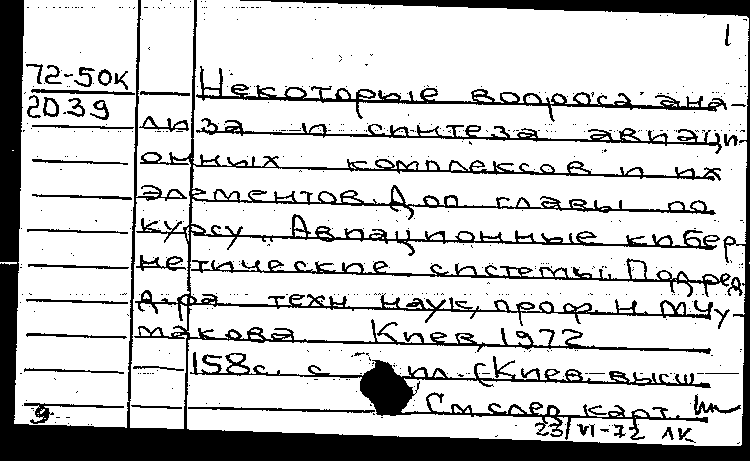 1
72-50к
2039
Некоторые вопроса ана-
лиза и синтеза авиаци-
онных комплексов и их
элементов. Доп. главы по
курсу „Авиационные кибер-
нетические системы". Под ред.
д-ра техн. наук, проф. Н. М. Чу-
макова Киев, 1972.
158с. с ил. (Киев. высш.
См. след. карт.
9
23/VI-72 ЛК